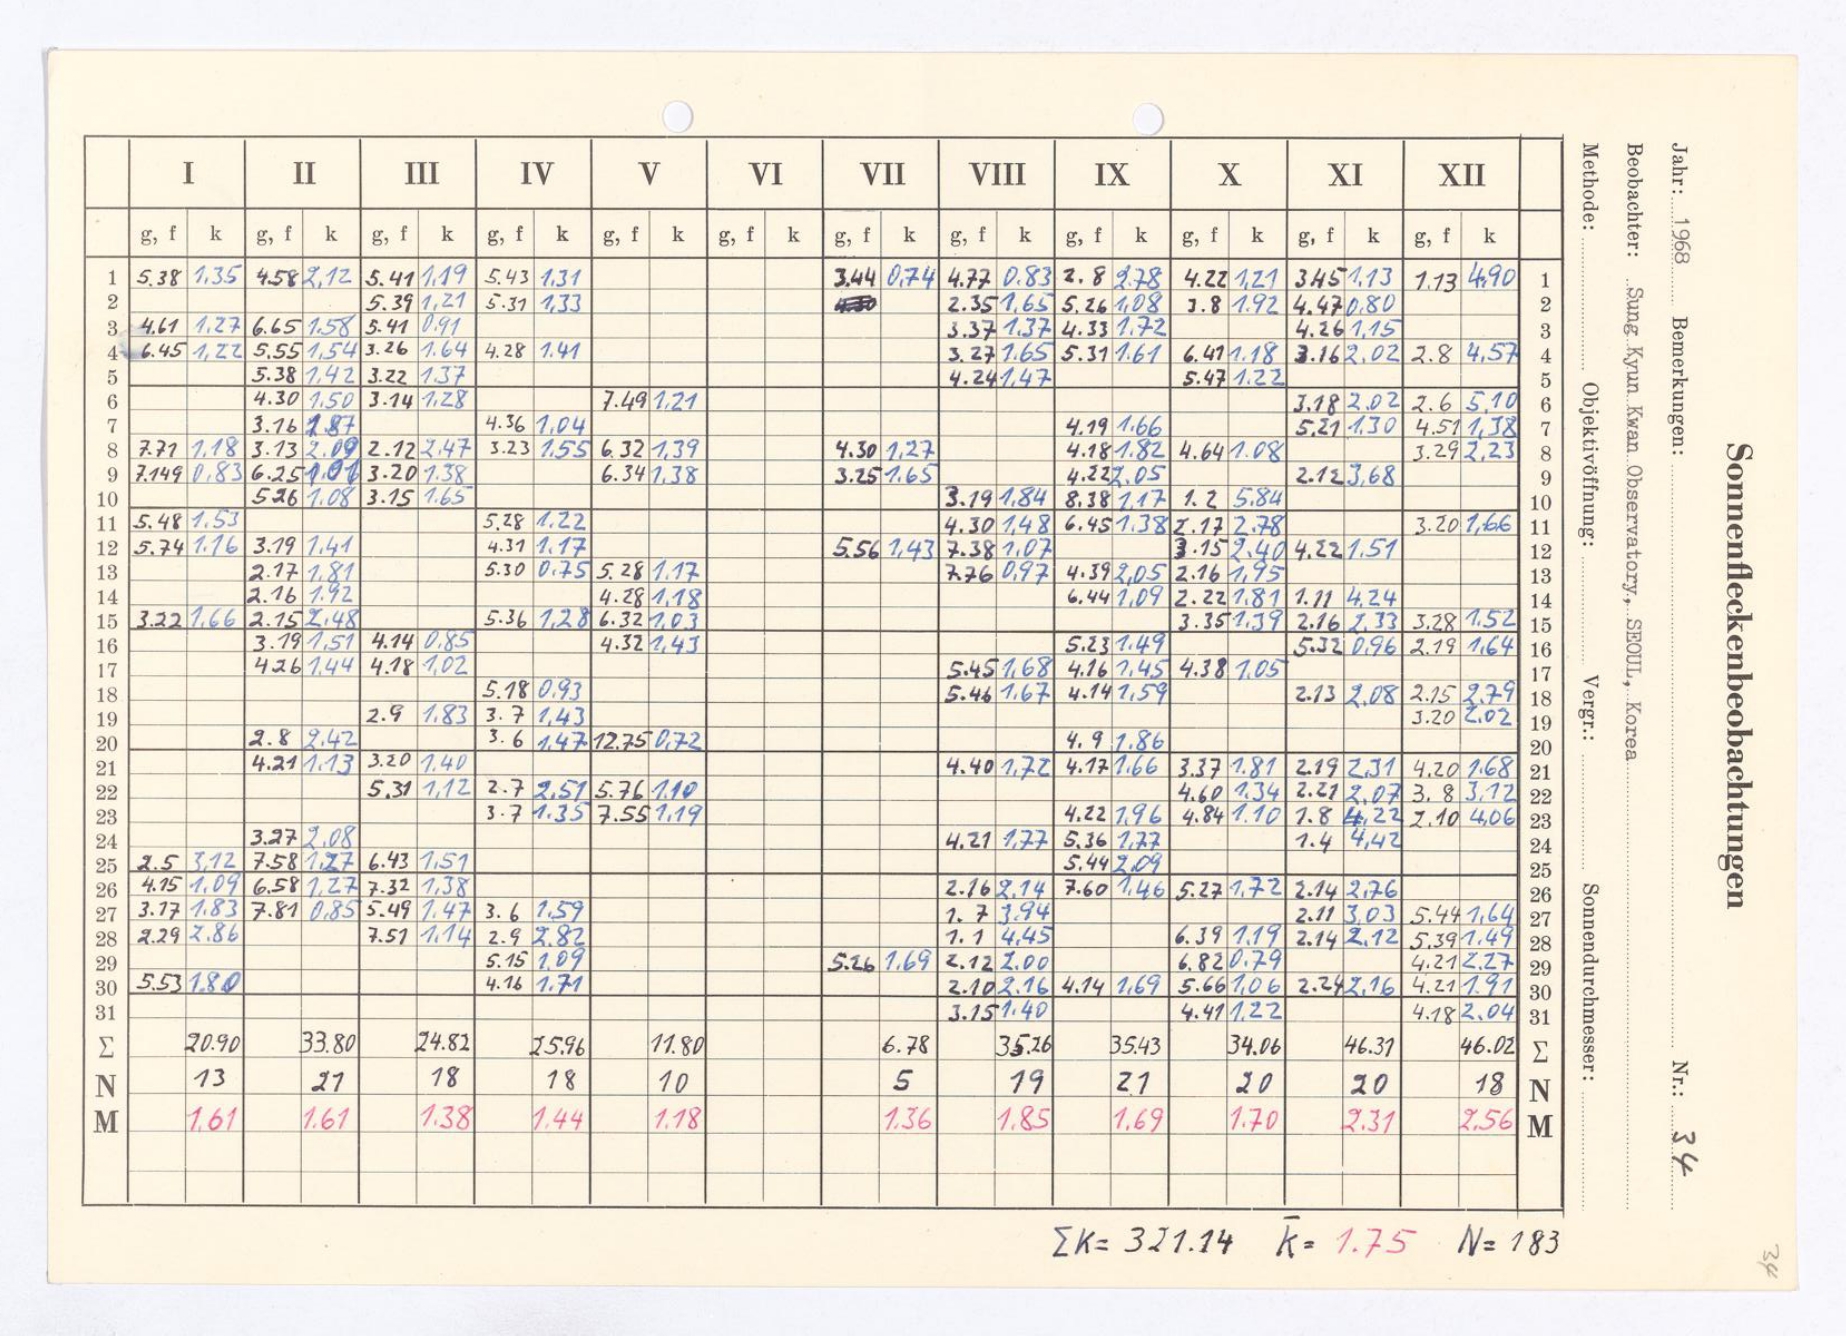 Sonnenfleckenbeobachtungen
Jahr: 1968 Bemerkungen: Nr.: 34
Beobachter: Sung Kyun Kwan Observatory, SEOUL, Korea
Methode: Objektivöffnung: Vergr.: Sonnendurchmesser:
I II III IV V VI VII VIII IX X XI XII
g, f k g, f k g, f k g, f k g, f k g, f k g, f k g, f k g, f k g, f k g, f k g, f k
1 5.38 1,35 4.58 2,12 5.41 1,19 5.43 1,31 3.44 0,74 4.77 0.83 2.8 2.78 4.22 1,21 3.45 1,13 1.13 4,90 1
2 5.39 1,21 5.31 1,33 2.35 1,65 5.26 1,08 3.8 1.92 4.47 0,80 2
3 4.61 1,27 6.65 1.58 5.41 0.91 3.37 1.37 4.33 1.72 4.26 1,15 3
4 6.45 1,22 5.55 1,54 3.26 1.64 4.28 1.41 3.27 1.65 5.31 1.61 6.41 1.18 3.16 2,02 2.8 4,57 4
5 5.38 1,42 3.22 1,37 4.24 1,47 5.47 1.22 5
6 4.30 1,50 3.14 1,28 7.49 1,21 3.18 2,02 2.6 5,10 6
7 3.16 1.87 4.36 1,04 4.19 1.66 5.21 1,30 4.51 1,38 7
8 7.71 1,18 3.13 2.09 2.12 2,47 3.23 1.55 6.32 1,39 4.30 1,27 4.18 1.82 4.64 1.08 3.29 2,23 8
9 7.149 0,83 6.25 1.01 3.20 1.38 6.34 1,38 3.25 1.65 4.22 2,05 2.12 3,68 9
10 5.26 1.08 3.15 1.65 3.19 1,84 8.38 1,17 1.2 5.84 10
11 5.48 1.53 5.28 1.22 4.30 1,48 6.45 1.38 2.17 2.78 3.20 1,66 11
12 5.74 1.16 3.19 1,41 4.31 1,17 5.56 1,43 7.38 1,07 3.15 2,40 4.22 1,51 12
13 2.17 1,81 5.30 0,75 5.28 1,17 7.76 0,97 4.39 2,05 2.16 1,95 13
14 2.16 1.92 4.28 1,18 6.44 1,09 2.22 1.81 1.11 4,24 14
15 3.22 1,66 2.15 2,48 5.36 1,28 6.32 1,03 3.35 1,39 2.16 2,33 3.28 1.52 15
16 3.19 1,51 4.14 0,85 4.32 1,43 5.23 1.49 5.32 0,96 2.19 1,64 16
17 4.26 1,44 4.18 1,02 5.45 1,68 4.16 1,45 4.38 1.05 17
18 5.18 0,93 5.46 1,67 4.14 1,59 2.13 2,08 2.15 2,79 18
19 2.9 1,83 3.7 1,43 3.20 2,02 19
20 2.8 2,42 3.6 1,47 12.75 0,72 4.9 1.86 20
21 4.21 1,13 3.20 1,40 4.40 1,72 4.17 1.66 3.37 1.81 2.19 2,31 4.20 1.68 21
22 5.31 1,12 2.7 2,51 5.76 1.10 4.60 1,34 2.21 2,07 3.8 3,12 22
23 3.7 1.35 7.55 1,19 4.22 1,96 4.84 1.10 1.8 4,22 2.10 4,06 23
24 3.27 2,08 4.21 1,77 5.36 1,77 1.4 4,42 24
25 2.5 3,12 7.58 1,27 6.43 1,51 5.44 2,09 25
26 4.15 1,09 6.58 1,27 7.32 1,38 2.16 2.14 7.60 1,46 5.27 1,72 2.14 2,76 26
27 3.17 1.83 7.81 0,85 5.49 1.47 3.6 1.59 1.7 3.94 2.11 3,03 5.44 1,64 27
28 2.29 2.86 7.51 1,14 2.9 2.82 1.1 4,45 6.39 1,19 2.14 2,12 5.39 1.49 28
29 5.15 1,09 5.26 1,69 2.12 2.00 6.82 0.79 4.21 2,27 29
30 5.53 1.80 4.16 1.71 2.10 2.16 4.14 1,69 5.66 1,06 2.24 2,16 4.21 1.91 30
31 3.15 1.40 4.41 1,22 4.18 2.04 31
Σ 20.90 33.80 24.82 25.96 11.80 6.78 35.26 35.43 34.06 46.31 46.02 Σ
N 13 21 18 18 10 5 19 21 20 20 18 N
M 1.61 1.61 1.38 1.44 1.18 1.36 1.85 1.69 1.70 2.31 2.56 M
ΣK= 321.14 k̄= 1.75 N= 183
34